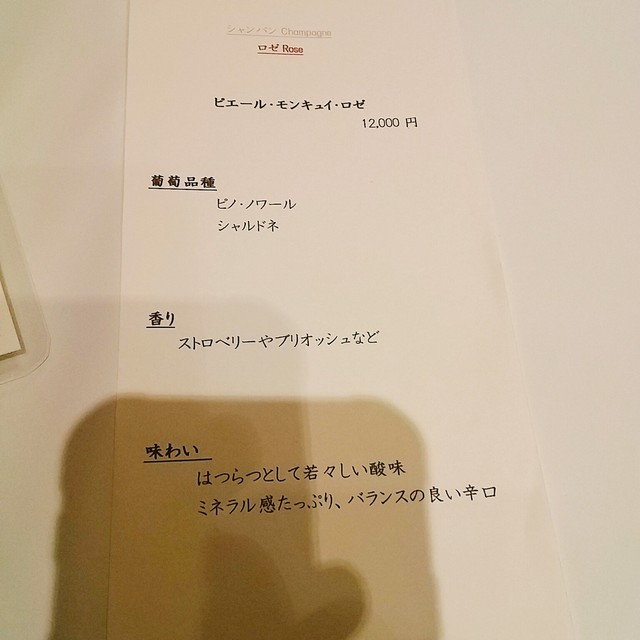 シャンパン Champagne
ロゼ Rose
ピエール・モンキュイ・ロゼ
12,000 円
葡萄品種
ピノ・ノワール
シャルドネ
香り
ストロベリーやブリオッシュなど
味わい
はつらつとして若々しい酸味
ミネラル感たっぷり、バランスの良い辛口